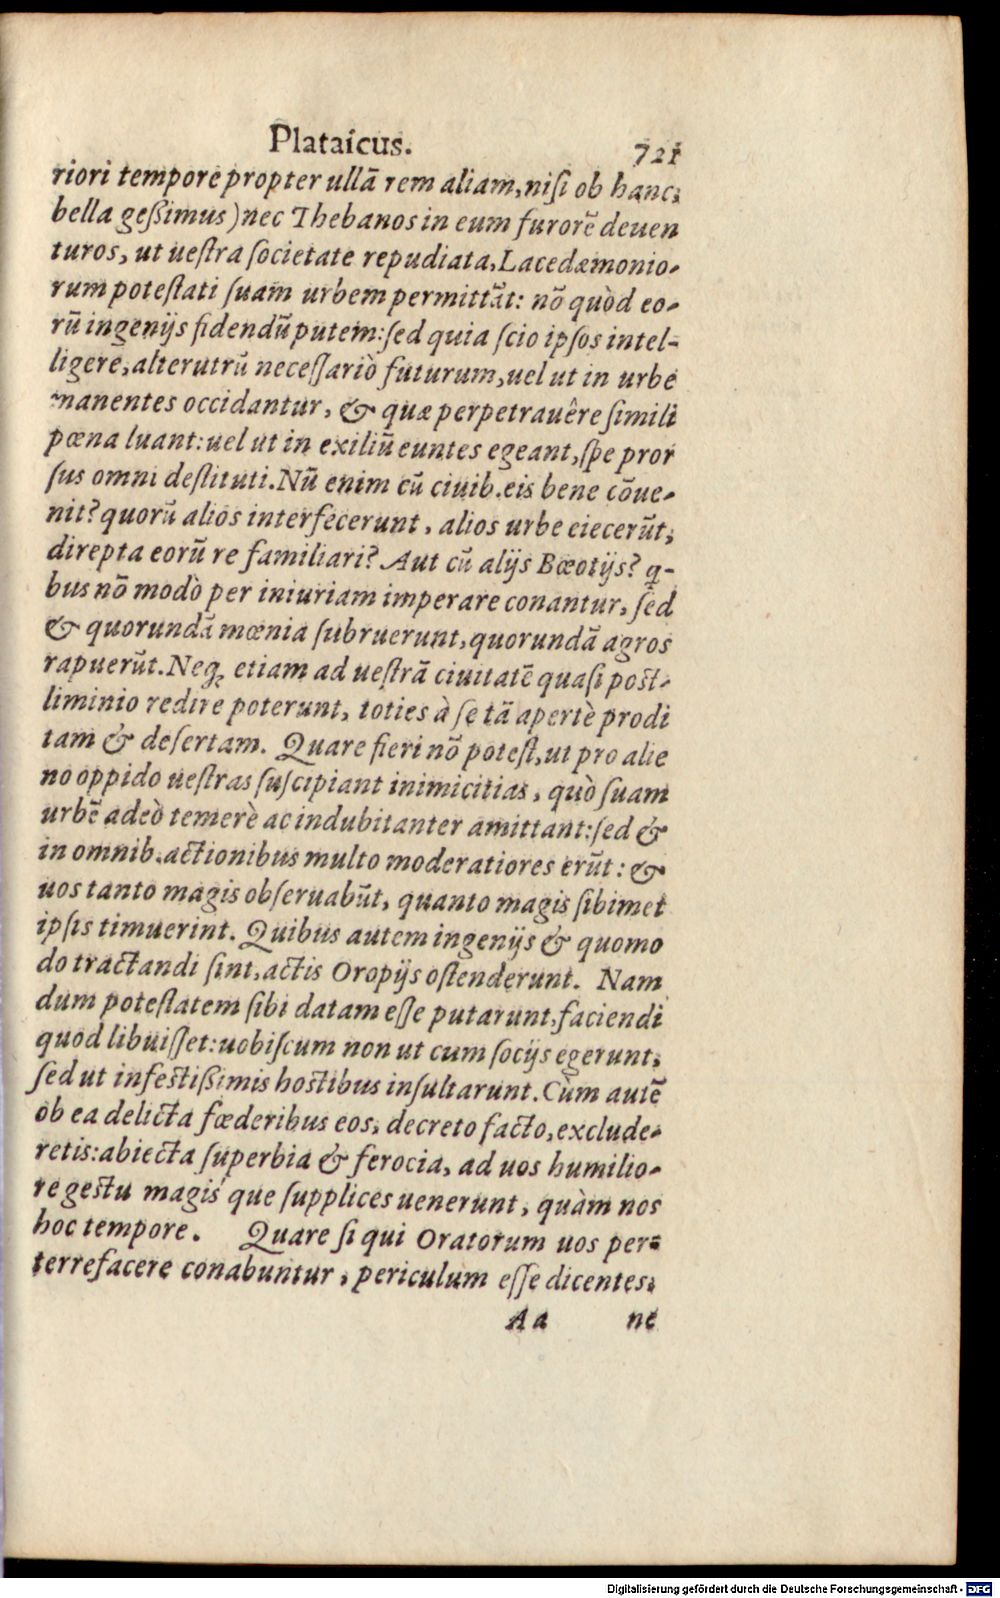 Plataicus. 721
riori tempore propter ullã rem aliam, niſi ob hanc,
bella geßimus) nec Thebanos in eum furorẽ deuen
turos, ut ueſtra ſocietate repudiata, Lacedæmonio-
rum poteſtati ſuam urbem permittãt: nõ quòd eo-
rũ ingenijs fidendũ putem: ſed quia ſcio ipſos intel-
ligere, alterutrũ neceſſariò futurum, uel ut in urbe
manentes occidantur, & quæ perpetrauêre ſimili
pœna luant: uel ut in exiliũ euntes egeant, ſpe pror
ſus omni deſtituti. Nũ enim cũ ciuib. eis bene cõue-
nit? quorũ alios interfecerunt, alios urbe eiecerũt,
direpta eorũ re familiari? Aut cũ alijs Bœotijs? q-
bus nõ modò per iniuriam imperare conantur, ſed
& quorundã mœnia ſubruerunt, quorundã agros
rapuerũt. Neq; etiam ad ueſtrã ciuitatẽ quaſi poſt-
liminio redire poterunt, toties à ſe tã apertè prodi
tam & deſertam. Quare fieri nõ poteſt, ut pro alie
no oppido ueſtras ſuſcipiant inimicitias, quò ſuam
urbẽ adeò temerè ac indubitanter amittant: ſed &
in omnib. actionibus multo moderatiores erũt: &
uos tanto magis obſeruabũt, quanto magis ſibimet
ipſis timuerint. Quibus autem ingenijs & quomo
do tractandi ſint, actis Oropijs oſtenderunt. Nam
dum poteſtatem ſibi datam eſſe putarunt, faciendi
quod libuiſſet: uobiſcum non ut cum ſocijs egerunt,
ſed ut infeſtißimis hoſtibus inſultarunt. Cùm autẽ
ob ea delicta fœderibus eos, decreto facto, exclude-
retis: abiecta ſuperbia & ferocia, ad uos humilio-
re geſtu magis que ſupplices uenerunt, quàm nos
hoc tempore. Quare ſi qui Oratorum uos per-
terrefacere conabuntur, periculum eſſe dicentes,
Aa ne
Digitalisierung gefördert durch die Deutsche Forschungsgemeinschaft - DFG